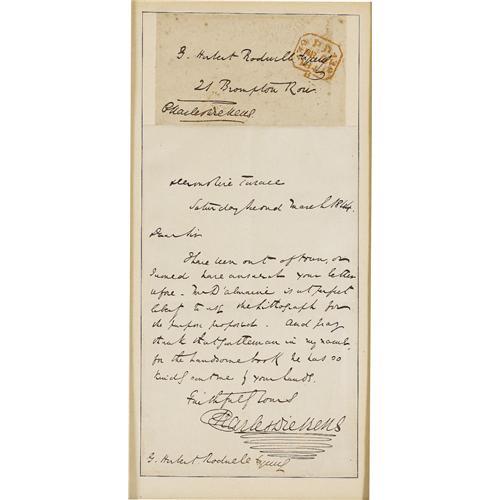 G. Herbert Rodwell Esquire
21 Brompton Row
Charles Dickens
Devonshire Terrace
Saturday Second March 1844.
Dear Sir
I have been out of town, or
I would have answered your letter
before. Mr D'almaine is at perfect
liberty to use the lithograph for
the purpose proposed. And pray
thank that gentleman in my name,
for the handsome book he has so
kindly sent me by your hands.
Faithfully Yours
Charles Dickens
G. Herbert Rodwell Esquire